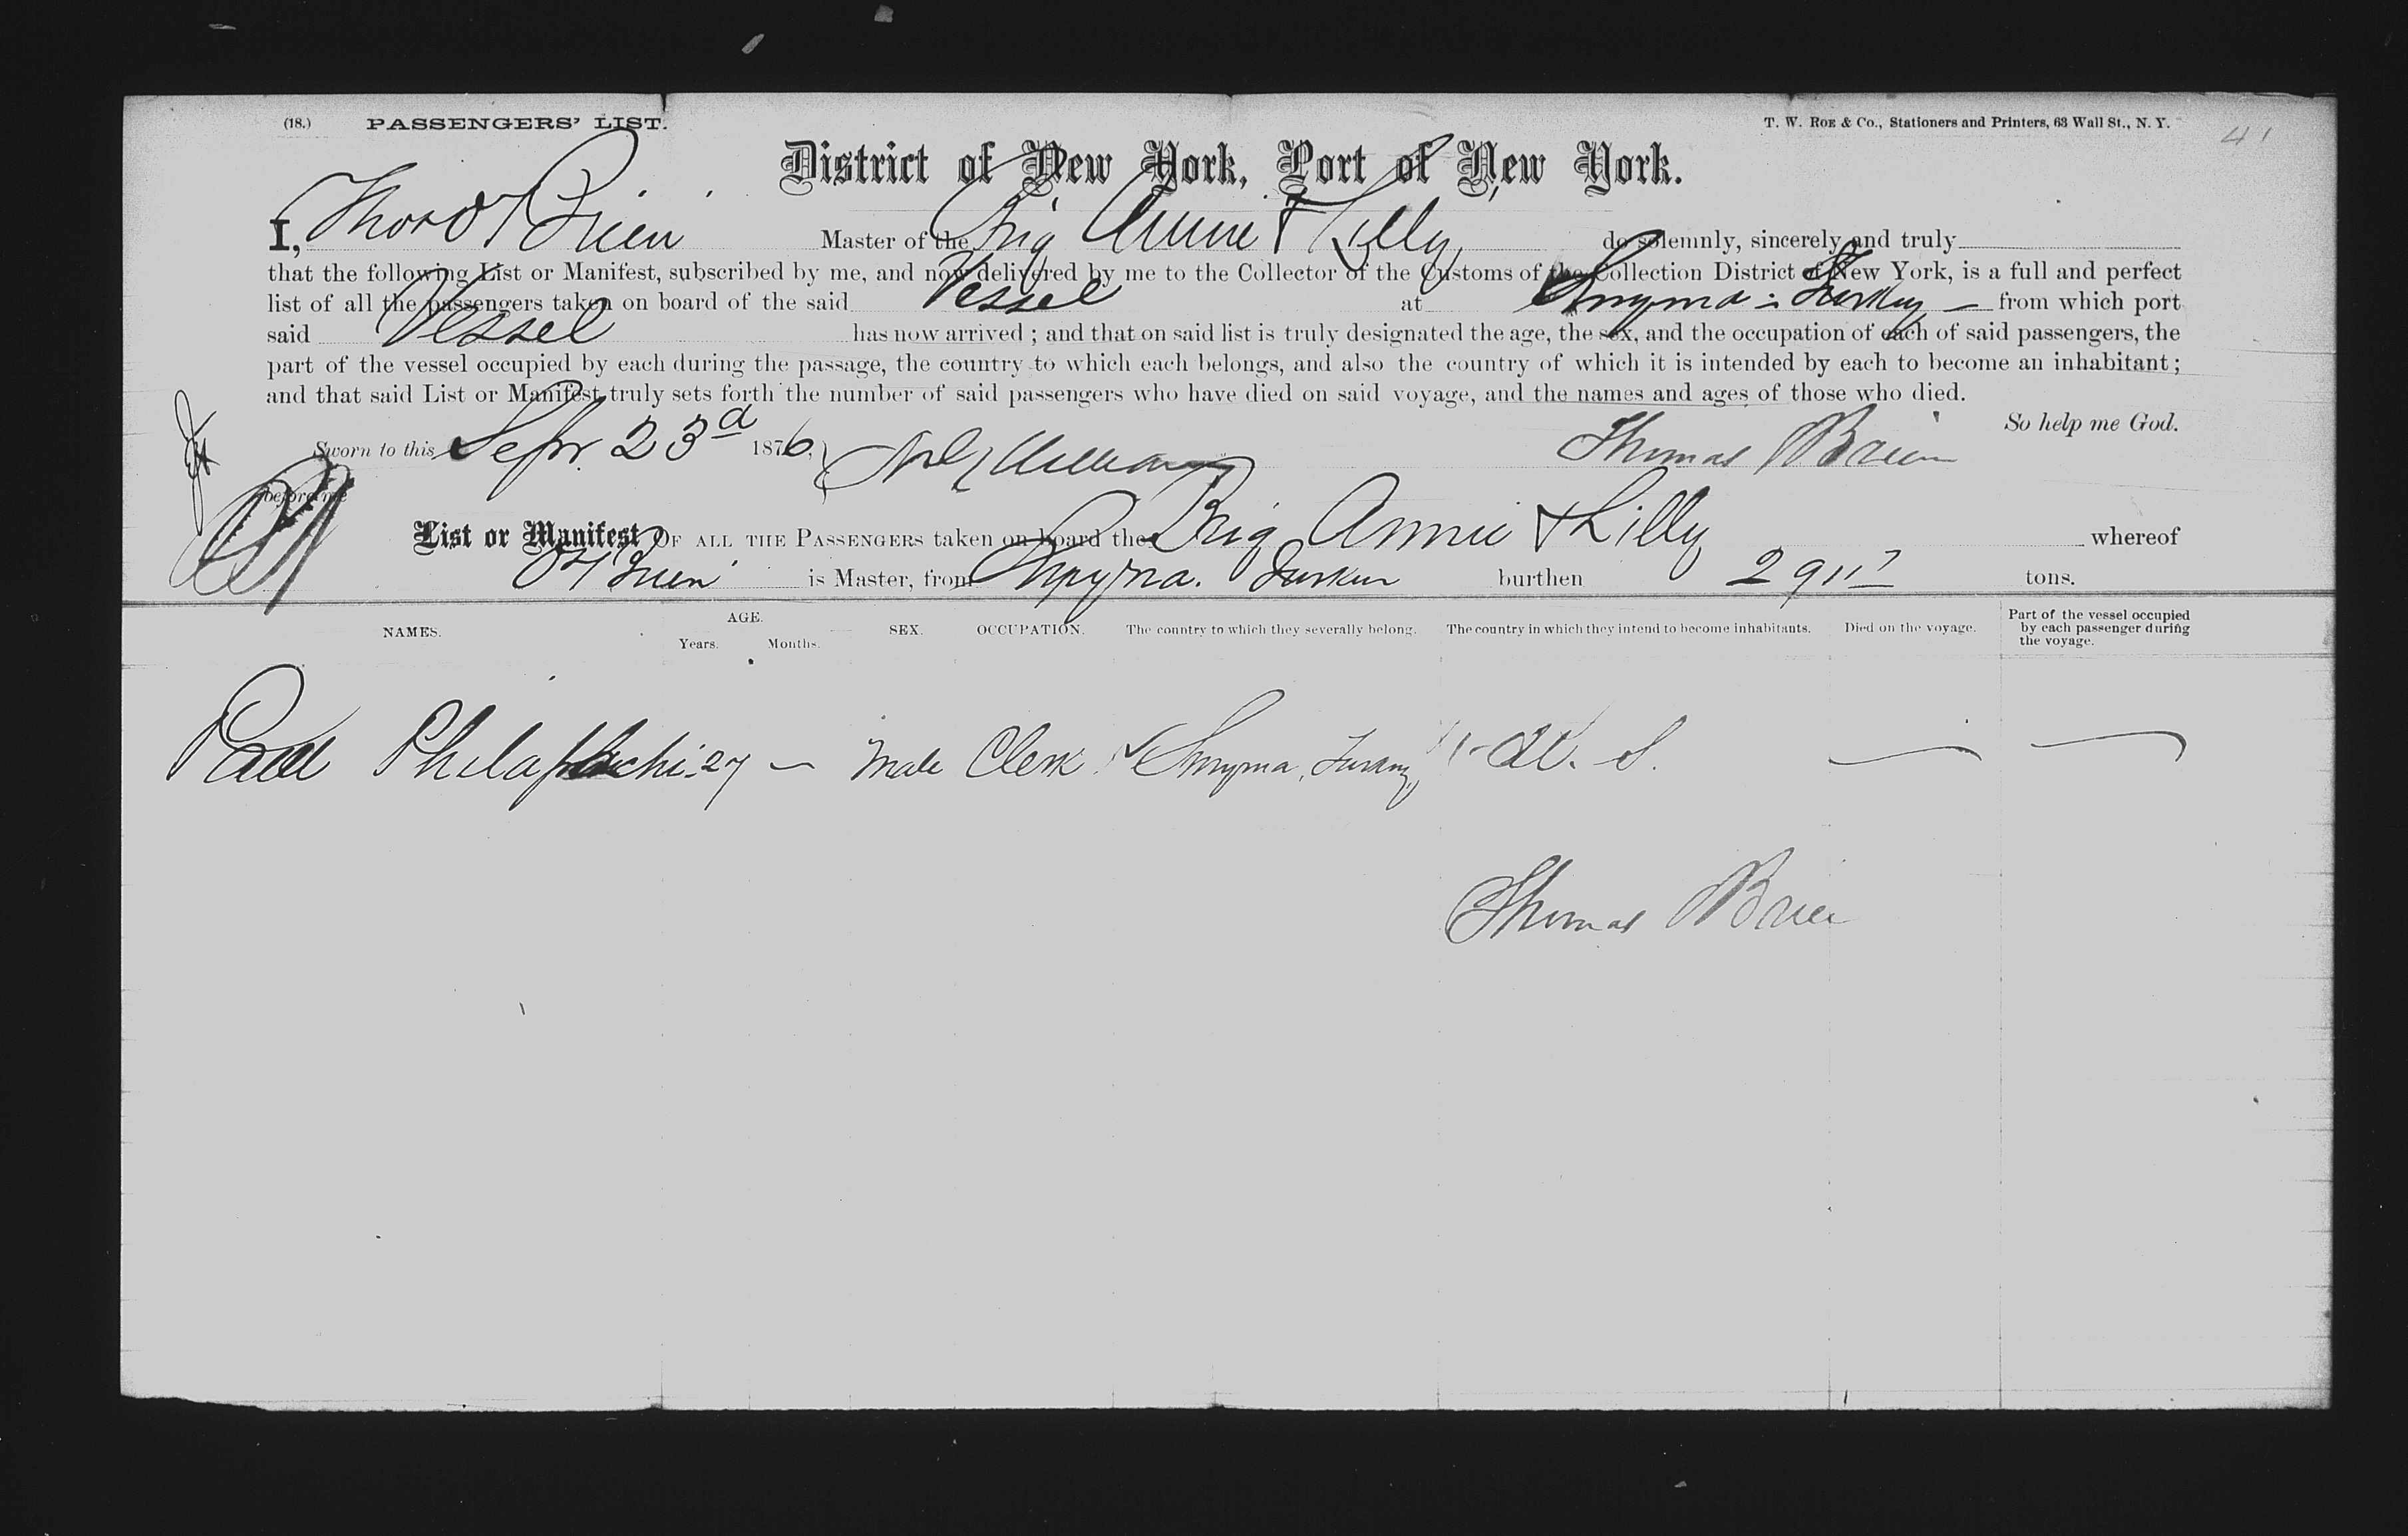 (18.) PASSENGERS' LIST.
T. W. ROE & Co., Stationers and Printers, 63 Wall St., N. Y.
41
District of New York, Port of New York.
I, Thos O'Brien Master of the Brig Annie & Lilly do solemnly, sincerely and truly
that the following List or Manifest, subscribed by me, and now delivered by me to the Collector of the Customs of the Collection District of New York, is a full and perfect
list of all the passengers taken on board of the said Vessel at Smyrna - Turkey - from which port
said Vessel has now arrived ; and that on said list is truly designated the age, the sex, and the occupation of each of said passengers, the
part of the vessel occupied by each during the passage, the country to which each belongs, and also the country of which it is intended by each to become an inhabitant ;
and that said List or Manifest truly sets forth the number of said passengers who have died on said voyage, and the names and ages of those who died.
So help me God.
Sworn to this Sepr 23d 1876, Thomas OBrien
before me
List or Manifest OF ALL THE PASSENGERS taken on board the Brig Annie & Lilly whereof
O'Brien is Master, from Smyrna. burthen tons.
NAMES. AGE. Years. Months. SEX. OCCUPATION. The country to which they severally belong. The country in which they intend to become inhabitants. Died on the voyage. Part of the vessel occupied by each passenger during the voyage.
Paul 27 — Male Clerk Smyrna, Turkey, U. S. — —
Thomas OBrien